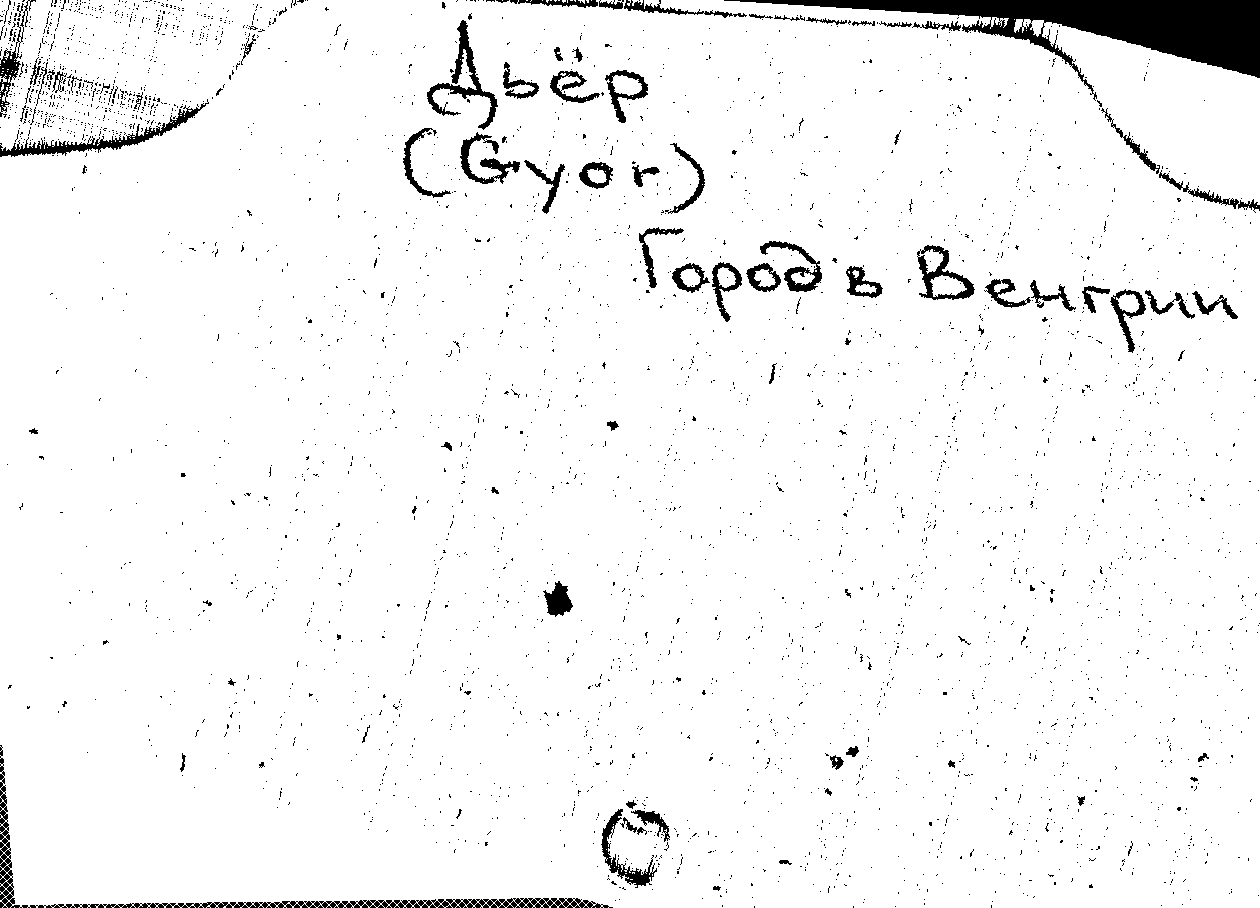 Дьёр
(Gyor)
Город в Венгрии